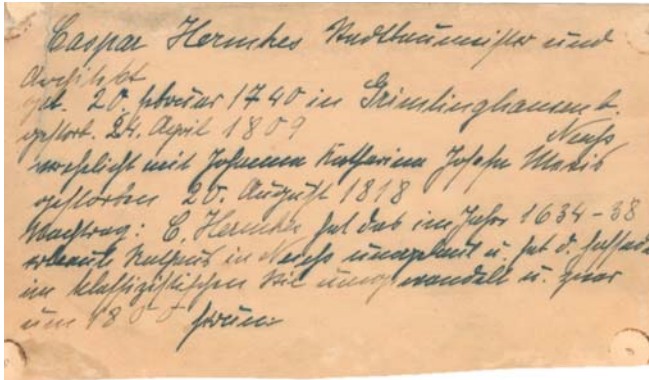 Caspar Hermkes Stadtbaumeister und
Architekt
geb. 20. Februar 1740 in Grimlinghausen b.
Neuß
gestorb. 24. April 1809
verehelicht mit Johanna Katharina Josefa
gestorben 20. August 1818
Nachtrag: C. Hermkes hat das im Jahr 1634-38
erbaute Rathaus in Neuß umgebaut u. hat d. Fassade
im klassizistischen Stil umgewandelt u. zwar
um 1800